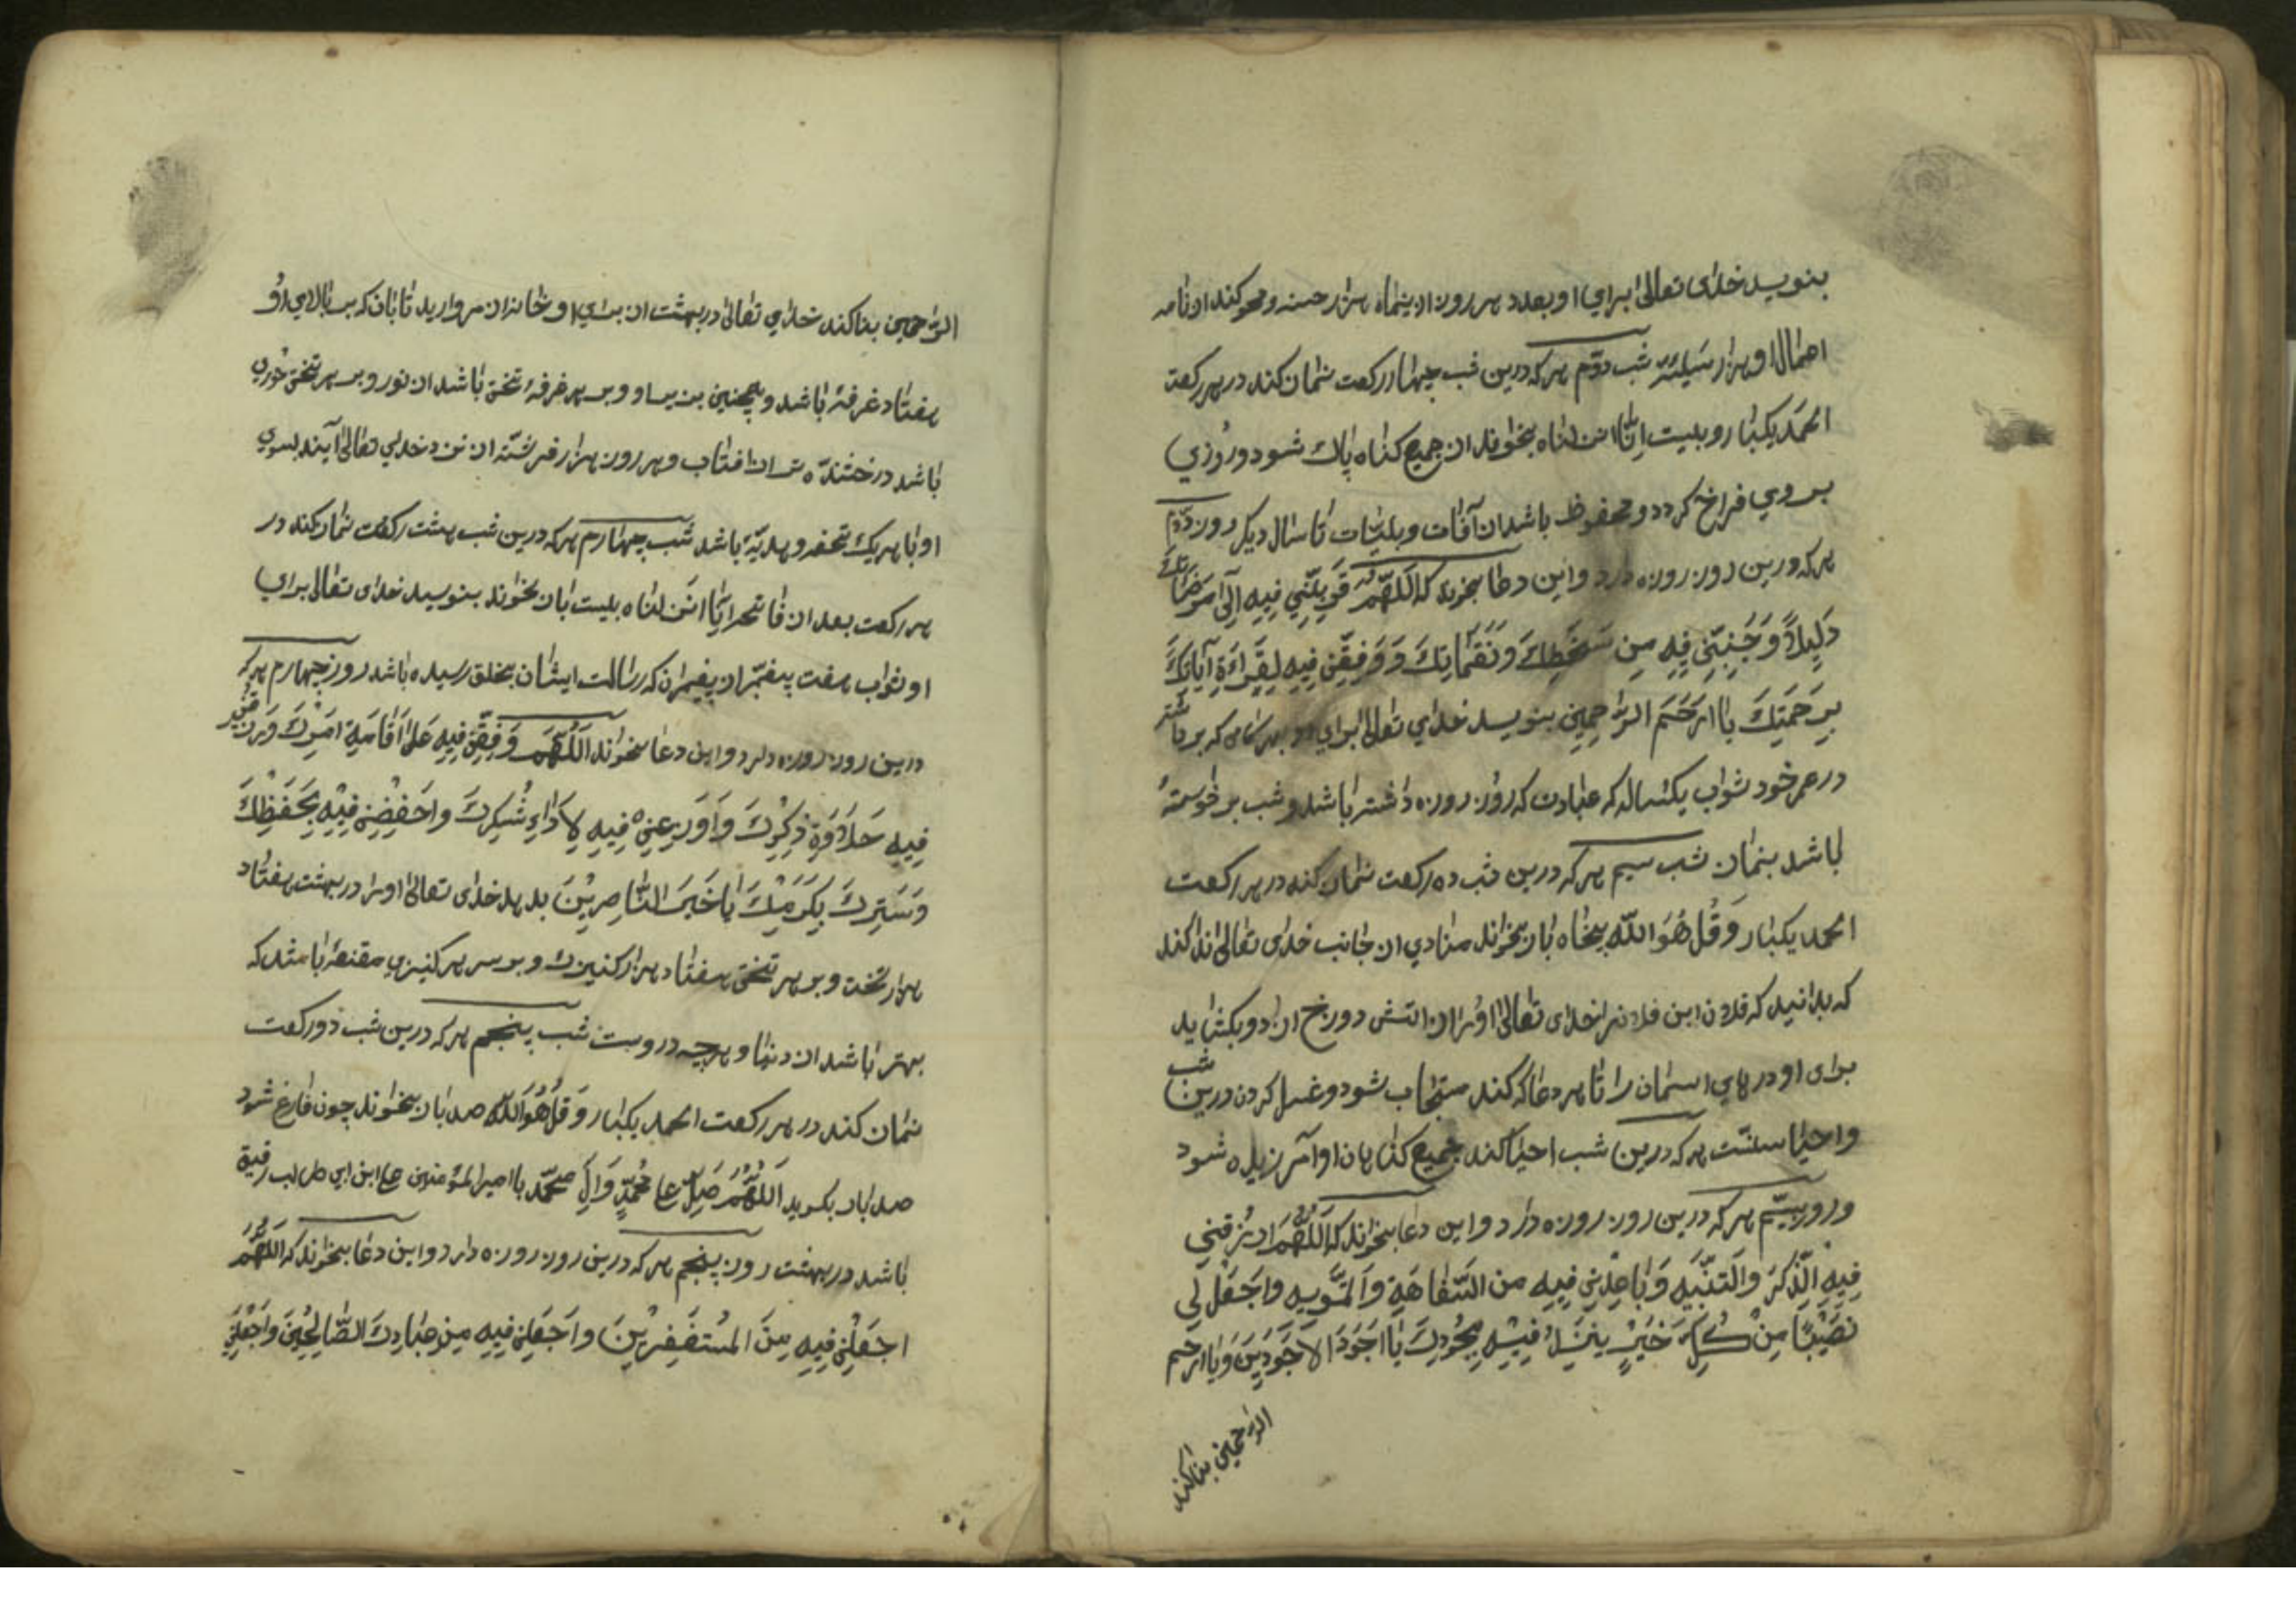 بنویسد خدای تعالی برای او بعدد هر روز ازینماه هزار حسنه و محو کند از نامه
اعمال او هزار سیئه شب دوّم هر که درین شب چهار رکعت نماز کند در هر رکعت
الحمد یکبار و بیست انّا انزلناه بخواند از جمیع کناه پاك شود و روزي
بر وي فراخ کردد و محفوظ باشد از آفات و بلیّات تا سال دیکر روز دوّم
هر که درین روز روزه دارد و این دعا بخواند که اَللّهُمَّ قَرِّبْنِي فِيهِ اِلَى مَرْضَاتِكَ
دَلِيلاً وَجَنِّبْنِي فِيهِ مِن سَخَطِكَ وَنَقَمَاتِكَ وَوَفِقّنِي فِيهِ لِقَرَاءَةِ آيَاتِكَ
بِرَحْمَتِكَ يَا اَرْحَمَ الرَّاحِمِينَ بنویسد خدای تعالی برای او بهر کامی که برداشته
در عمر خود ثواب یکساله که عبادت که روز روزه داشته باشد و شب برخواسته
باشد بنماز شب سیم هر که درین شب ده رکعت نماز کند در هر رکعت
الحمد یکبار وَقُل هُوَ اللّه پنجاه بار بخواند منادي از جانب خدای تعالی ندا کند
که بدانید که فلان ابن فلانرا خدای تعالی اورا از اتش دوزخ ازاد و بکشاید
برای او درهاي اسمان را تا هر دعا که کند مستجاب شود و غسل کردن درین شب
و احیا سنّت هر که درین شب احیا کند جمیع کناهان او آمرزیده شود
و روز سیّم هر که درین روز روزه دارد و این دعا بخواند که اَللّهُمَّ ارْزُقنِي
فِيهِ الذِّكرَ وَالتَنّبِيهِ وَبَاعِدْنِي فِيهِ مِنَ السَّفَاهَةِ وَالتَّمْوِيهِ وَاجْعَلْ لِي
نَصِيْباً مِنْ كُلِّ خَيْرٍ يَنْزِلُ فِيْهِ بِجُودِكَ يَا اَجْوَدَ الاَجْوَدِينَ وَيَا اَرْحَمَ
الرّاحمین بنا کند
الرّاحمین بنا کند خدای تعالی در بهشت از برای او خانه از مروارید تابان که بر بالاي او
هفتاد غرفهٔ باشد و همچنین بر یسار او و بر هر غرفهٔ تختی باشد از نور و بر هر تختی حوري
باشد درخشنده تر از افتاب و هر روز هزار فرشته از نزد خدای تعالی آیند بسوي
او با هر یك تحفه و هدیّهٔ باشد شب چهارم هر که درین شب هشت رکعت نماز کند در
هر رکعت بعد از فاتحه انّا انزلناه بیست بار بخواند بنویسد خدای تعالی براي
او ثواب هفت پیغمبر از پیغمبران که رسالت ایشان بخلق رسیده باشد روز چهارم هر که
درین روز روزه دارد و این دعا بخواند اَللّهُمَّ وَفِقّنِي فِيهِ عَلَى اَقَامَةِ اَمْرِكَ وَارْزُقْنِي
فِيهِ حَلَاوَةَ ذِكْرِكَ وَاَوْرِعْنِي فِيهِ لِاَدَاءِ شُكْرِكَ وَاحْفِظْنِي فِيْهِ بِحَفْظِكَ
وَسَتْرِكَ بِكَرَمِكَ يَا خَيْرَ النَّاصِرِيْنَ بدهد خدای تعالی اورا در بهشت هفتاد
هزار تخت و بر هر تختی هفتاد هزار کنیزك و بر سر هر کنیزی مقنعهٔ باشد که
بهتر باشد از دنیا و هرچه دروست شب پنجم هر که درین شب دو رکعت
نماز کند در هر رکعت الحمد یکبار وَقُل هُوَ اللّه صد بار بخواند چون فارغ شود
صد بار بکوید اَللّهُمَّ صَلِّ عَلی مُحَمَّدٍ وَآلِ مُحَمَّدٍ با امیر المؤمنین علی ابن ابی طالب رفیق
باشد در بهشت روز پنجم هر که درین روز روزه دارد و این دعا بخواند که اَللّهُمَّ
اجْعَلْنِي فِيهِ مِنَ المُسْتَغْفِرِيْنَ وَاجْعَلنِي فِيهِ مِن عِبَادِكَ الصَّالِحِيْنَ وَاجْعَلْنِي